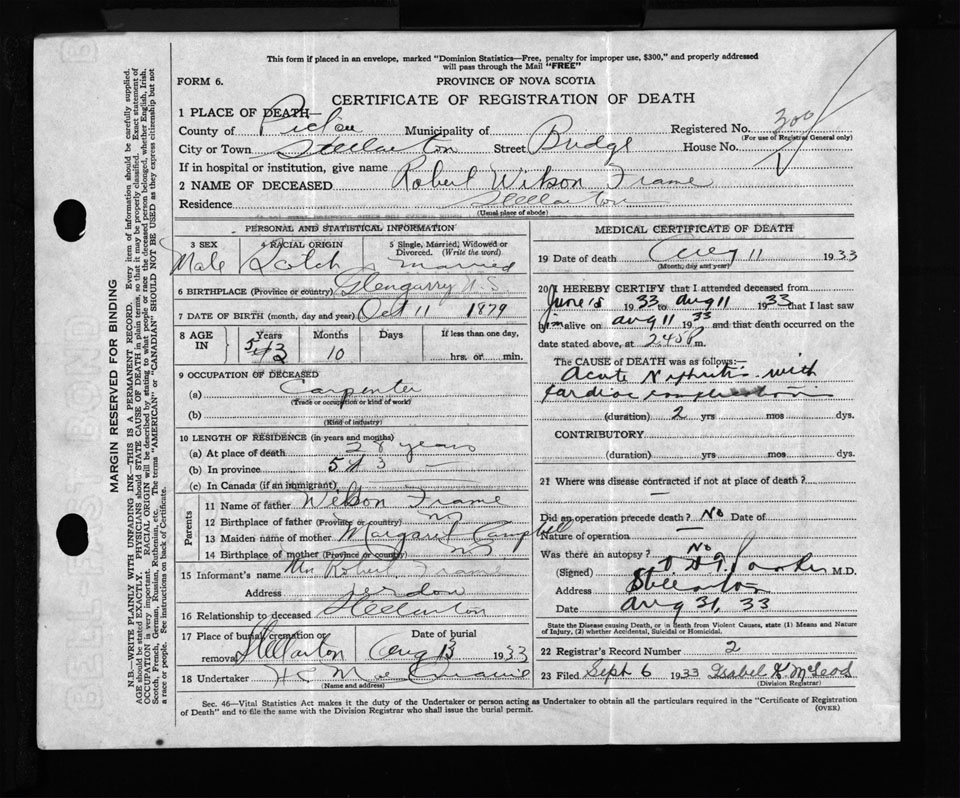 This form if placed in an envelope, marked "Dominion Statistics—Free, penalty for improper use, $300," and properly addressed
will pass through the Mail "FREE"
FORM 6.
PROVINCE OF NOVA SCOTIA
CERTIFICATE OF REGISTRATION OF DEATH
1 PLACE OF DEATH—
County of Pictou Municipality of Registered No. 300
(For use of Registrar General only)
City or Town Stellarton Street Bridge House No.
If in hospital or institution, give name
2 NAME OF DECEASED Robert Wilson Frame
Residence Stellarton
(Usual place of abode)
PERSONAL AND STATISTICAL INFORMATION
3 SEX 4 RACIAL ORIGIN 5 Single, Married, Widowed or
Divorced. (Write the word)
Male Scotch Married
6 BIRTHPLACE (Province or country) Glengarry N.S.
7 DATE OF BIRTH (month, day and year) Oct 11 1879
8 AGE IN Years Months Days If less than one day,
53 10 hrs. or min.
9 OCCUPATION OF DECEASED
(a) Carpenter
(Trade or occupation or kind of work)
(b)
(Kind of industry)
10 LENGTH OF RESIDENCE (in years and months)
(a) At place of death years
(b) In province 53
(c) In Canada (if an immigrant)
Parents
11 Name of father Wilson Frame
12 Birthplace of father (Province or country) NS
13 Maiden name of mother Margaret Campbell
14 Birthplace of mother (Province or country) NS
15 Informant's name Mrs Robert Frame
Address Stellarton
16 Relationship to deceased
17 Place of burial, cremation or Date of burial
removal Stellarton Aug 13 1933
18 Undertaker
(Name and address)
MEDICAL CERTIFICATE OF DEATH
19 Date of death Aug 11 1933
(Month, day and year)
20 I HEREBY CERTIFY that I attended deceased from
June 15 1933 to Aug 11 1933 that I last saw
him alive on Aug 11 1933 and that death occurred on
date stated above, at 245 P m.
The CAUSE OF DEATH was as follows:—
Acute Nephritis with
Cardiac complications
(duration) 2 yrs mos dys.
CONTRIBUTORY
(duration) yrs mos dys.
21 Where was disease contracted if not at place of death?
Did an operation precede death? No Date of
Nature of operation —
Was there an autopsy? No
(Signed) M.D.
Address Stellarton
Date Aug 31, 33
State the Disease causing Death, or in death from Violent Causes, state (1) Means and Nature
of Injury, (2) whether Accidental, Suicidal or Homicidal.
22 Registrar's Record Number 2
23 Filed Sept 6 1933 Isabel K McLeod
(Division Registrar)
Sec. 46—Vital Statistics Act makes it the duty of the Undertaker or person acting as Undertaker to obtain all the particulars required in the "Certificate of Registration
of Death" and to file the same with the Division Registrar who shall issue the burial permit.
(OVER)
MARGIN RESERVED FOR BINDING
N.B.—WRITE PLAINLY WITH UNFADING INK—THIS IS A PERMANENT RECORD. Every item of information should be carefully supplied.
AGE should be stated EXACTLY. PHYSICIANS should STATE CAUSE OF DEATH in plain terms, so that it may be properly classified. Exact statement of
OCCUPATION is very important. RACIAL ORIGIN will be described by stating to what people or race the deceased person belonged, whether English, Irish,
Scotch, French, German, Russian, Ruthenian, etc. The terms "AMERICAN" or "CANADIAN" SHOULD NOT BE USED as they express citizenship but not
a race or people. See instructions on back of Certificate.